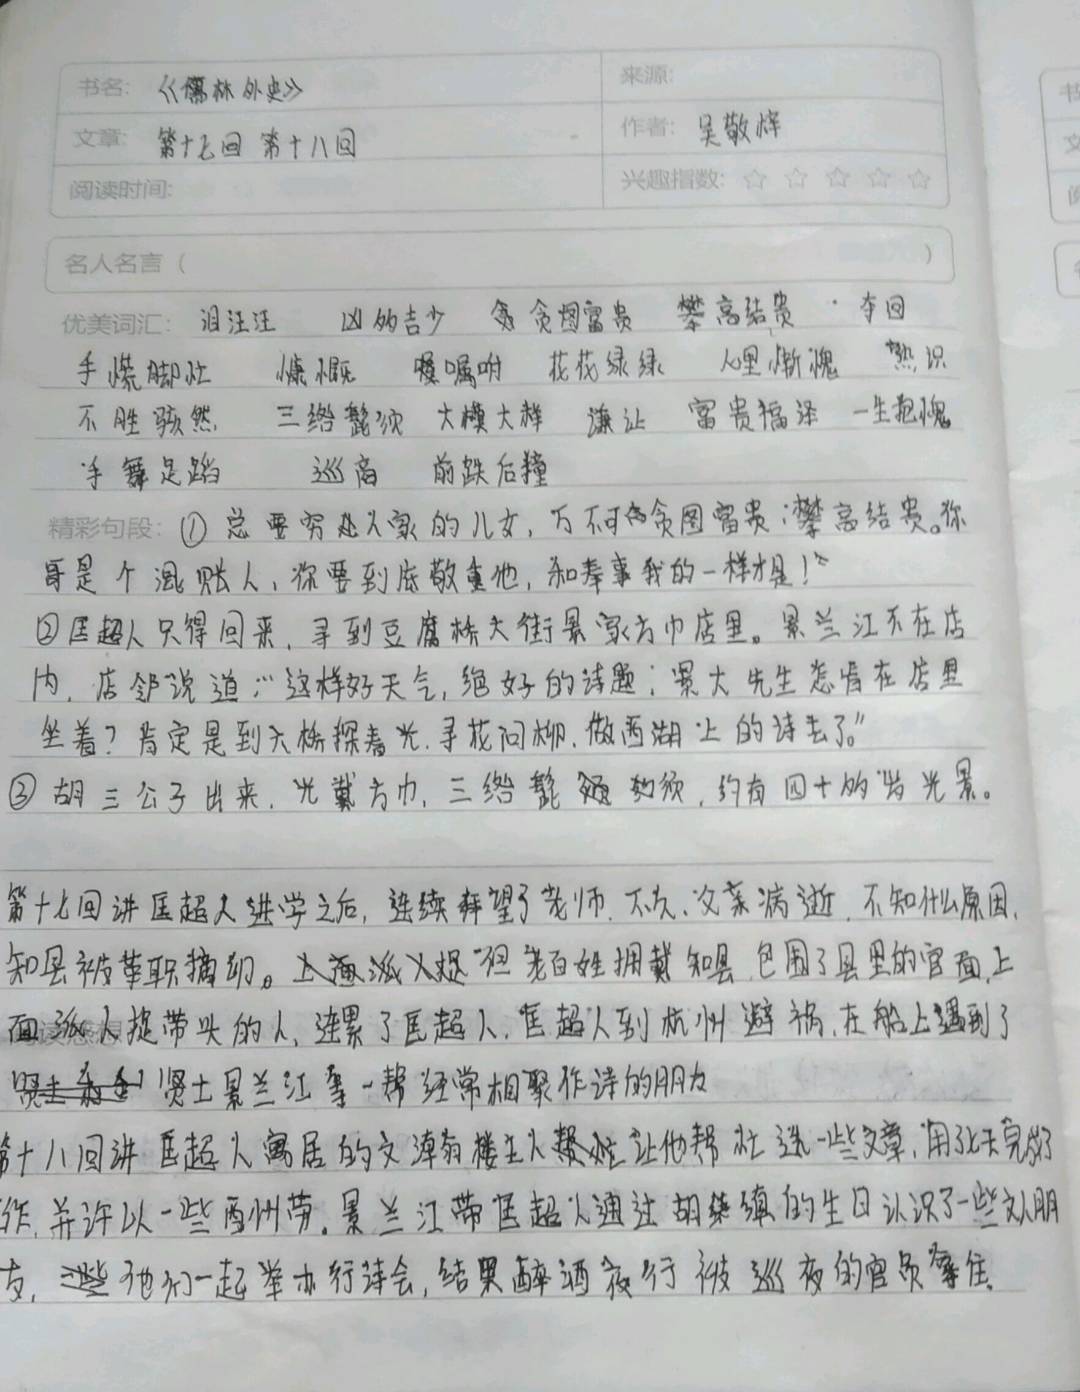 书名: 《儒林外史》 来源:
文章: 第十七回 第十八回 作者: 吴敬梓
阅读时间: 兴趣指数: ☆ ☆ ☆ ☆ ☆
名人名言 ( )
优美词汇: 泪汪汪 凶多吉少 贪图富贵 攀高结贵 夺回
手慌脚忙 慷慨 嘱咐 花花绿绿 心里惭愧 熟识
不胜骇然 三绺髭须 大模大样 谦让 富贵福泽 一生抱愧
手舞足蹈 巡商 前跌后撞
精彩句段: ① 总要穷处人家的儿女,万不可贪图富贵;攀高结贵。你
哥是个混账人,你要到底敬重他,和奉事我的一样才是!"
②匡超人只得回来,寻到豆腐桥大街景家方巾店里。景兰江不在店
内,店邻说道:"这样好天气,绝好的诗题;景大先生怎肯在店里
坐着?肯定是到六桥探春光,寻花问柳,做西湖上的诗去了。"
③ 胡三公子出来,光戴方巾,三绺髭须,约有四十多岁光景。
第十七回讲匡超人进学之后,连续拜望了老师,不久,父亲病逝,不知什么原因,
知县被革职摘印。但老百姓拥戴知县,包围了县里的官面,上
面派人捉带头的人,连累了匡超人,匡超人到杭州避祸,在船上遇到了
贤士景兰江等一帮经常相聚作诗的朋友
第十八回讲匡超人寓居的文瀚楼主人让他帮忙选一些文章,用了六天完成了
作,并许以一些酬劳。景兰江带匡超人通过胡缜的生日认识了一些文人朋
友,他们一起举办行诗会,结果醉酒夜行被巡夜的官员拿住。